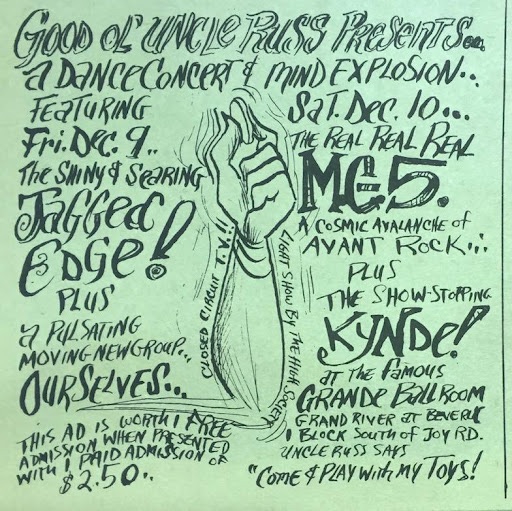 GOOD OL' UNCLE RUSS PRESENTS...
a DANCE CONCERT & MIND EXPLOSION..
FEATURING
Fri. Dec. 9..
THE SHINY & SEARING
JAGGED
EDGE!
PLUS
a PULSATING
MOVING-NEW GROUP...
OURSELVES...
THIS AD IS WORTH 1 FREE
ADMISSION WHEN PRESENTED
WITH 1 PAID ADMISSION OF
$2.50..
CLOSED CIRCUIT T.V.!!
LIGHT SHOW BY THE HIGH SOCIETY
SAT. DEC. 10...
THE REAL REAL REAL
MC5.
A COSMIC AVALANCHE of
AVANT ROCK...
PLUS
THE SHOW-STOPPING
KYNDE!
AT THE FAMOUS
GRANDE BALLROOM
GRAND RIVER AT BEVERLY
1 BLOCK SOUTH OF JOY RD.
UNCLE RUSS SAYS
"COME & PLAY WITH MY TOYS!